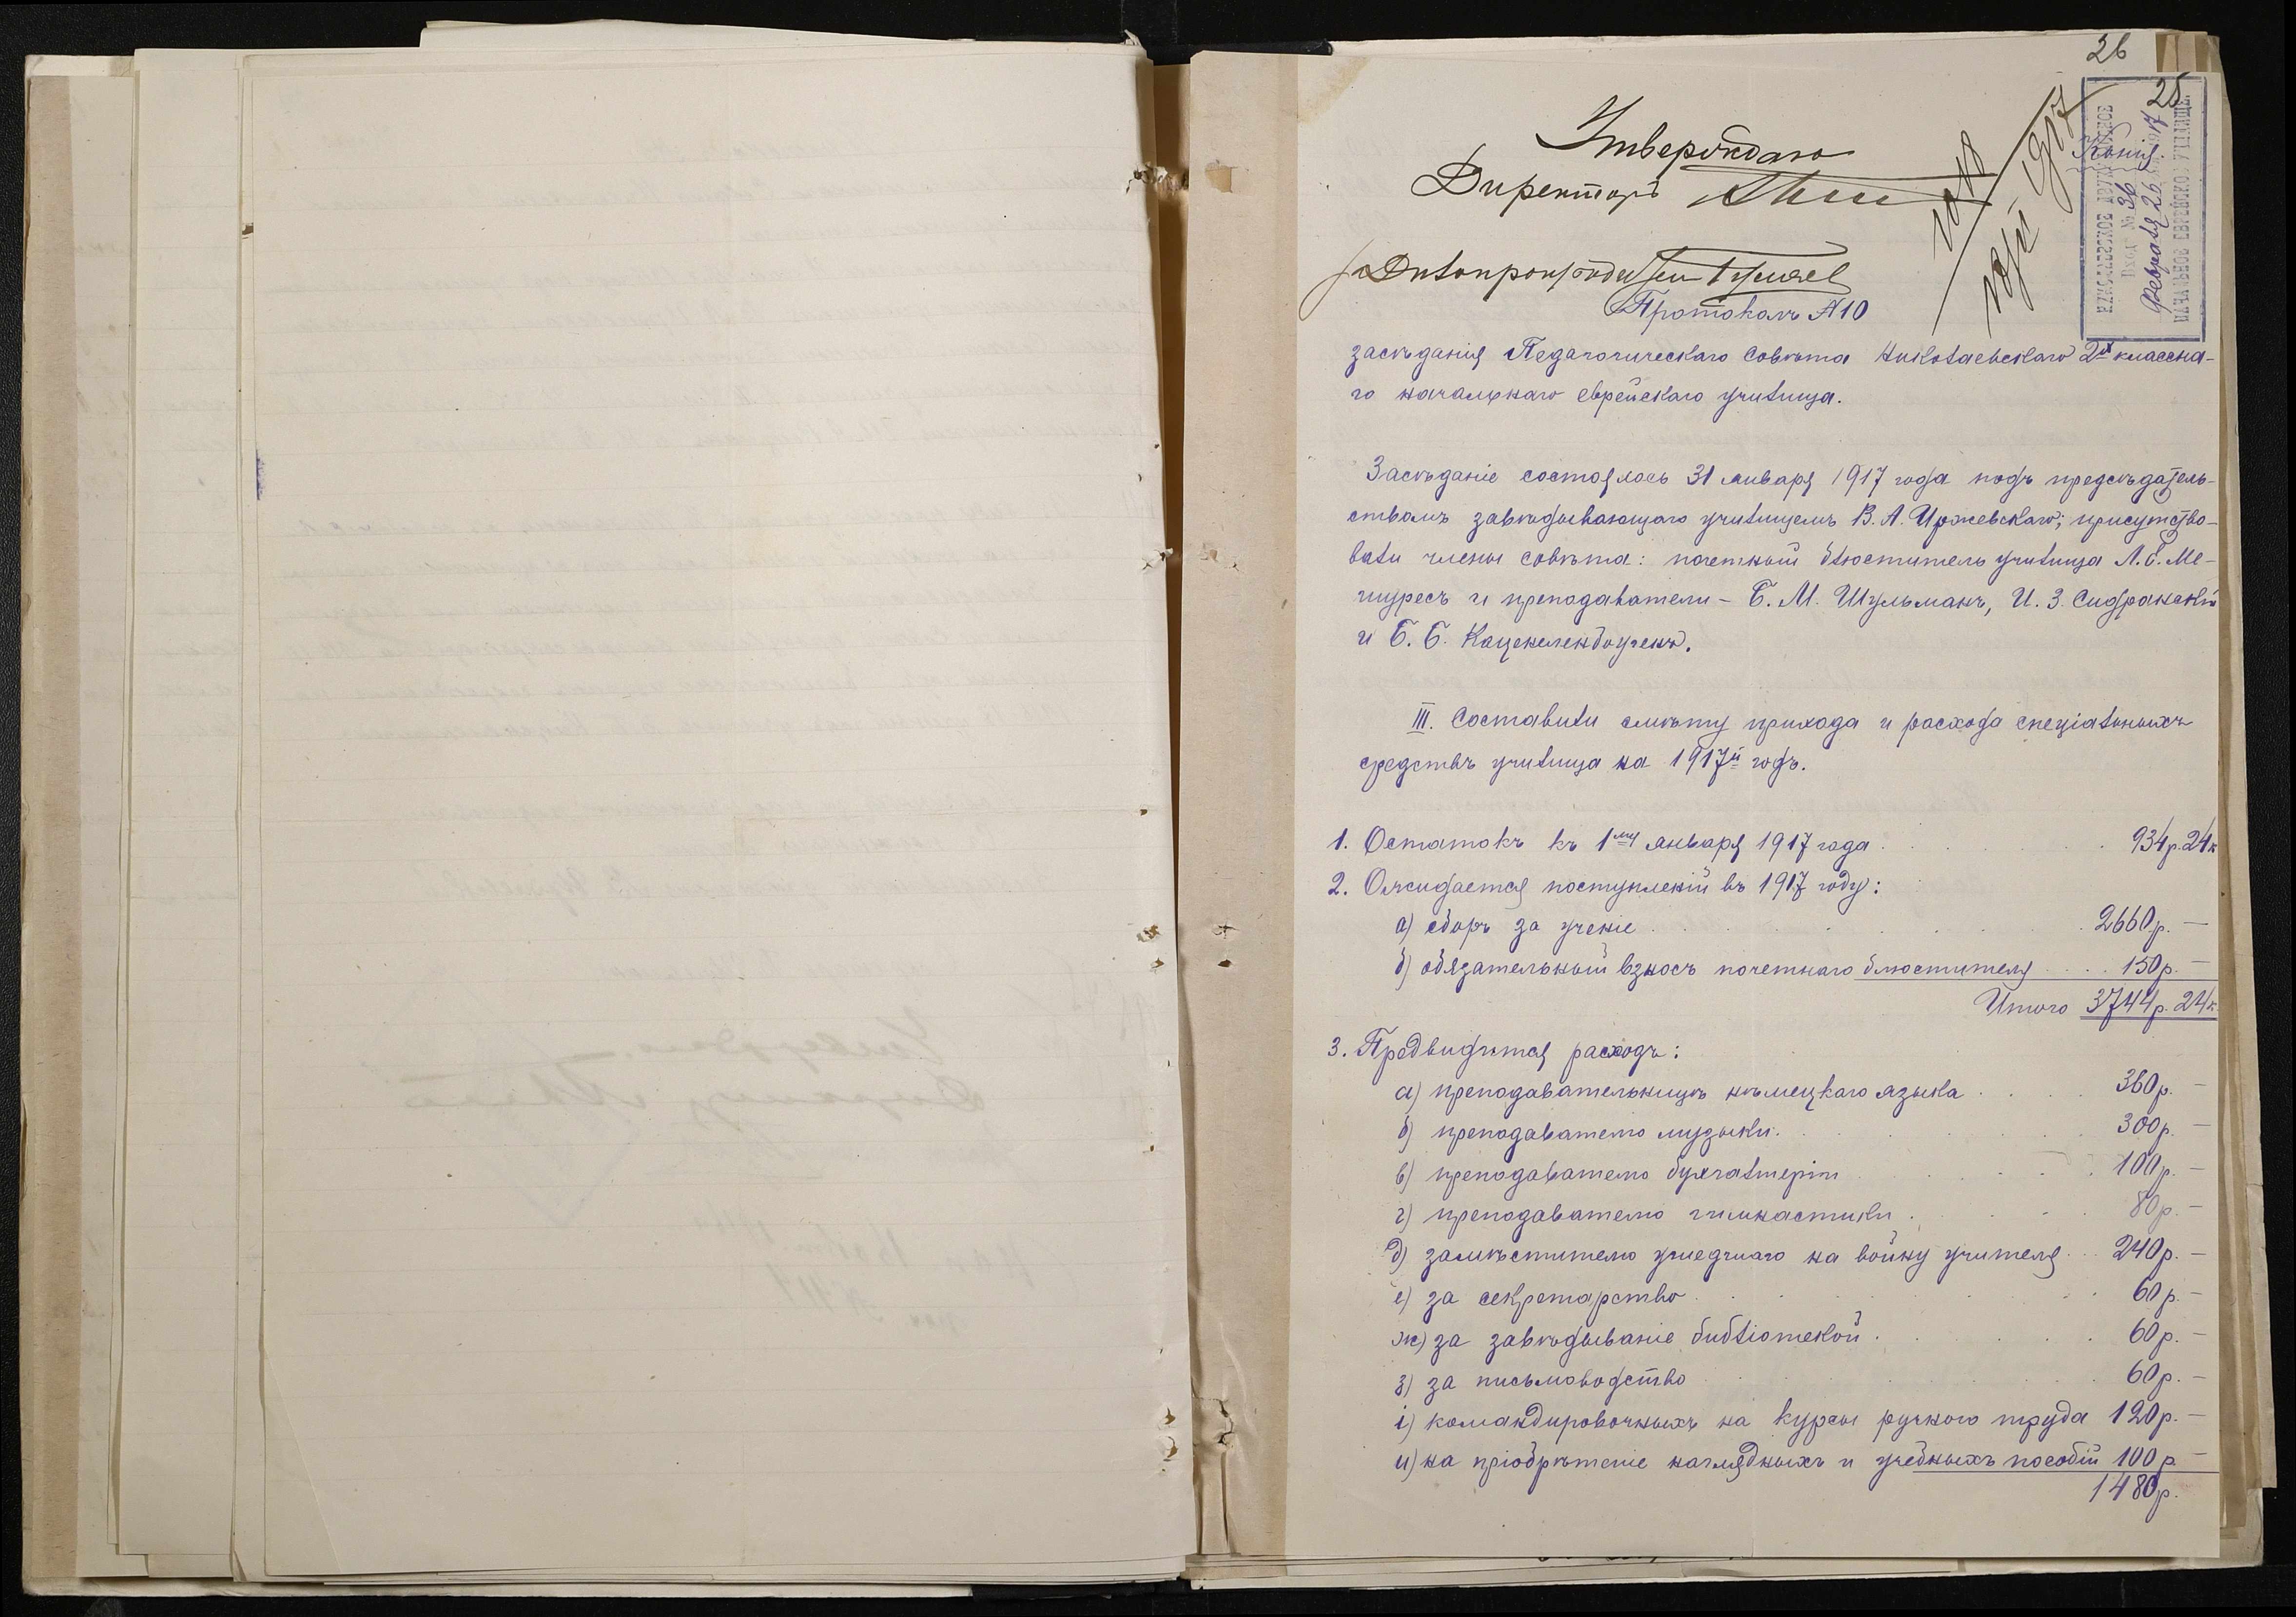 26
25
Утверждаю
Директоръ
Копія.
НИКОЛАЕВСКОЕ ДВУХКЛАССНОЕ
Вход. № 36
Февраля 26 1917
НАЧАЛЬНОЕ ЕВРЕЙСКОЕ УЧИЛИЩЕ.
1917
Протоколъ №10
засѣданія Педагогическаго Совѣта Николаевскаго 2хъ классна-
го начальнаго еврейскаго училища.
Засѣданіе состоялось 31 января 1917 года подъ предсѣдатель-
ствомъ завѣдывающаго училищемъ В. А. Иржевскаго; присутство-
вали члены совѣта: почетный блюститель училища Л. Е. Ме-
шуресъ и преподаватели – Б. М. Шульманъ, И. З. Сидранскій
и Б. Б. Каценеленбогенъ.
III. Составили смѣту прихода и расхода спеціальныхъ
средствъ училища на 1917й годъ.
1. Остатокъ къ 1му января 1917 года . . . . . . 934р. 24к
2. Ожидается поступленій въ 1917 году:
а) сборъ за ученіе . . . . . . . 2660р. —
б) обязательный взносъ почетнаго блюстителя . . . . 150р. —
Итого 3744р. 24к.
3. Предвидѣтся расходъ:
а) преподавательницѣ нѣмецкаго языка . . . . 360р. —
б) преподавателю музыки . . . . . 300р. —
в) преподавателю бухгалтеріи . . . . 100р. —
г) преподавателю гимнастики . . . . 80р. —
д) замѣстителю ушедшаго на войну учителя . . 240р. —
е) за секретарство . . . . . . 60р. —
ж) за завѣдываніе библіотекой . . . . . 60р. —
з) за письмоводство . . . . . . 60р. —
і) командировочныхъ на курсы ручного труда 120р. —
и) на пріобрѣтеніе наглядныхъ и учебныхъ пособій 100р —
1480р.